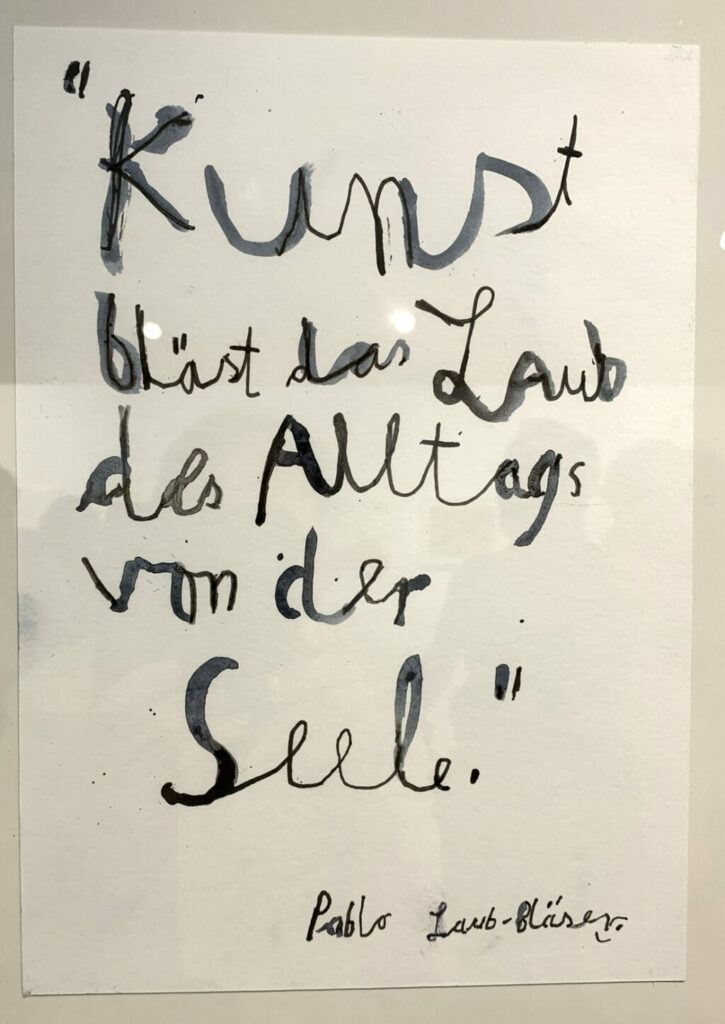 "Kunst
bläst das Laub
des Alltags
von der
Seele."
Pablo Laub-Bläser.